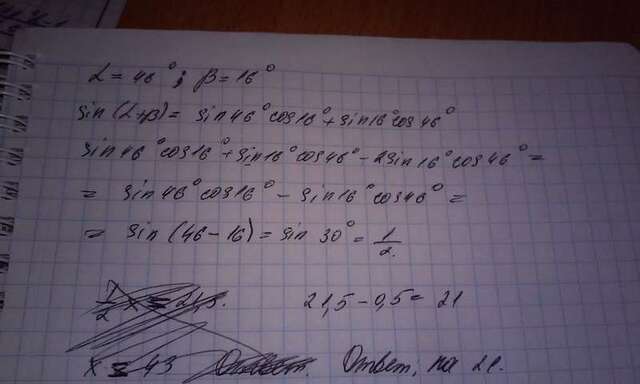 α = 46° ; β = 16°
sin (α+β) = sin 46° cos 16° + sin 16° cos 46°
sin 46° cos 16° + sin 16° cos 46° - 2 sin 16° cos 46° =
= sin 46° cos 16° - sin 16° cos 46° =
= sin (46 - 16) = sin 30° = 1/2.
1/2 x = 21,5. 21,5 - 0,5 = 21
x = 43 Ответ. Ответ, на 21.